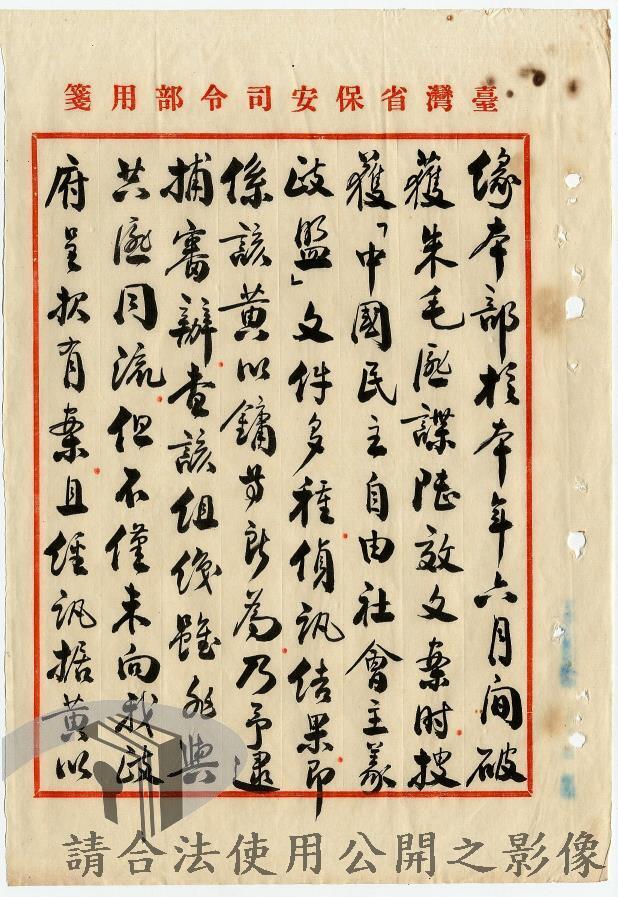 臺灣省保安司令部用箋
緣本部於本年六月間破
獲朱毛匪諜陸效文案時搜
獲「中國民主自由社會主義
政盟」文件多種偵訊結果即
係該黃以鏞等所為乃予逮
捕審辦查該組織雖非與
共匪同流但不僅未向我政
府呈報有案且經訊據黃以
請合法使用公開之影像